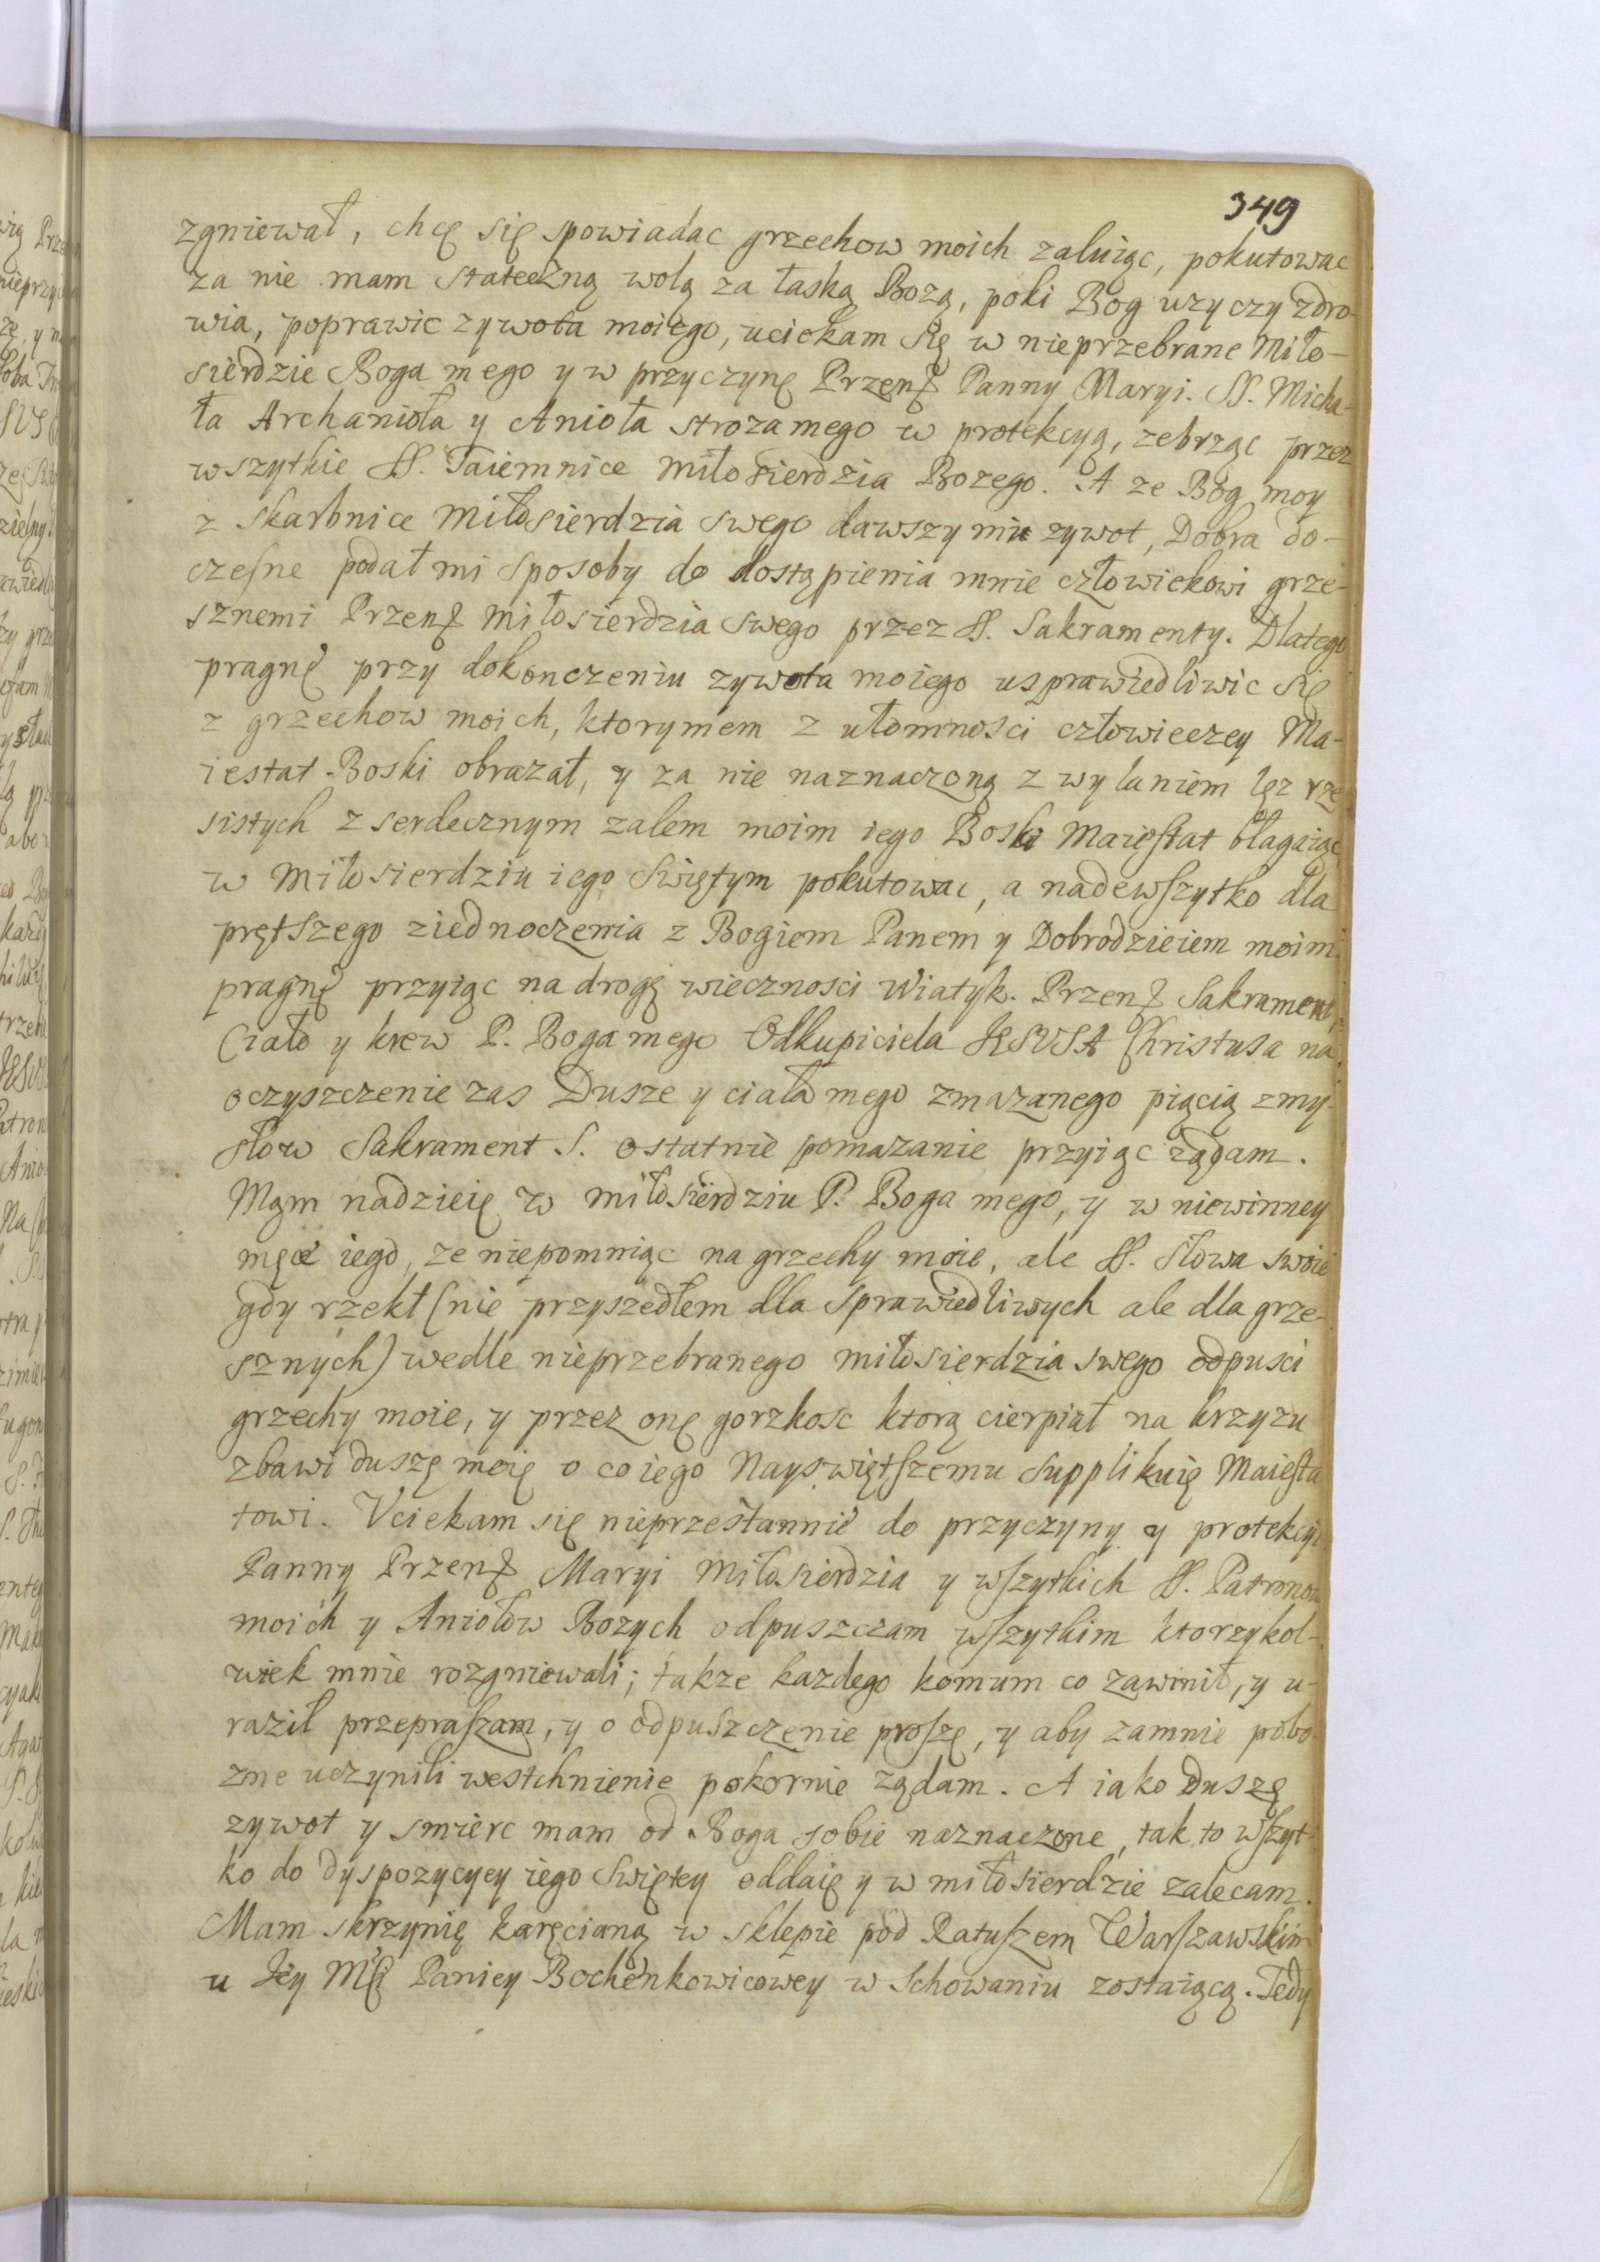 349
zgniewał, chcę się spowiadac grzechow moich załuiąc, pokutowac
za nie mam stateczną wolą za łaską Bozą, poki Bog uzyczy zdro-
wia, poprawic zywota moiego, uciekam się w nieprzebrane Miło-
sierdzie Boga mego y w przyczynę Przenß Panny Maryi. SS. Micha-
ła Archanioła y Anioła stroza mego w protekcyą, zebrząc przez
wszytkie SS. Taiemnice miłosierdzia Bozego. A ze Bog moy
z skarbnice Miłosierdzia swego dawszy mi zywot, Dobra do-
czesne podał mi sposoby do dostąpienia mnie człowiekowi grze-
sznemi Przenß miłosierdzia swego przez SS. Sakramenty. Dlatego
pragnę przy dokonczeniu zywota moiego usprawiedliwic się
z grzechow moich, ktorymem z ułomnosci człowieczey Ma-
iestat Boski obrazał, y za nie naznaczoną z wylaniem łęz rzę
sistych z serdecznym zalem moim iego Boski Maiestat błagaiąc
w Miłosierdziu iego Swiętym pokutowac, a nadewszytko dla
prętszego ziednoczenia z Bogiem Panem y Dobrodzieiem moim
pragnę przyiąc na drogę wiecznosci Wiatyk. Przenß Sakrament,
Ciało y krew P. Boga mego Odkupiciela JESUSA Christusa na
oczyszczenie zas Dusze y ciała mego zmazanego pięcią zmy-
słow Sakrament S. ostatnie pomazanie przyiąc ządam.
Mam nadzieię w miłosierdziu P. Boga mego, y w niewinney
męce iego, ze niepomniąc na grzechy moie, ale SS. słowa swoie
gdy rzekł (nie przyszedłem dla sprawiedliwych ale dla grze-
sznych) wedle nieprzebranego miłosierdzia swego odpusci
grzechy moie, y przez onę gorzkosc ktorą cierpiał na krzyzu
zbawi duszę moię o co iego Nayswiętszemu supplikuię Maiesta
towi. Uciekam się nieprzestannie do przyczyny y protekcyi
Panny Przenß Maryi Miłosierdzia y wszytkich SS. Patronow
moich y Aniołow Bozych odpuszczam wszytkim ktorzykol-
wiek mnie rozgniewali; takze kazdego komum co zawinił, y u-
raził przepraszam, y o odpuszczenie proszę, y aby zamnie pobo
zne uczynili westchnienie pokornie ządam. A iako duszę
zywot y smierc mam od Boga sobie naznaczone, tak to wszyt-
ko do dyspozycyey iego Swiętey oddaię y w miłosierdzie zalecam.
Mam skrzynię karęcianą w sklepie pod Ratuszem Warszawskim
u Jey Mßi Paniey Bochenkowicowey w schowaniu zostaiącą. Tedy